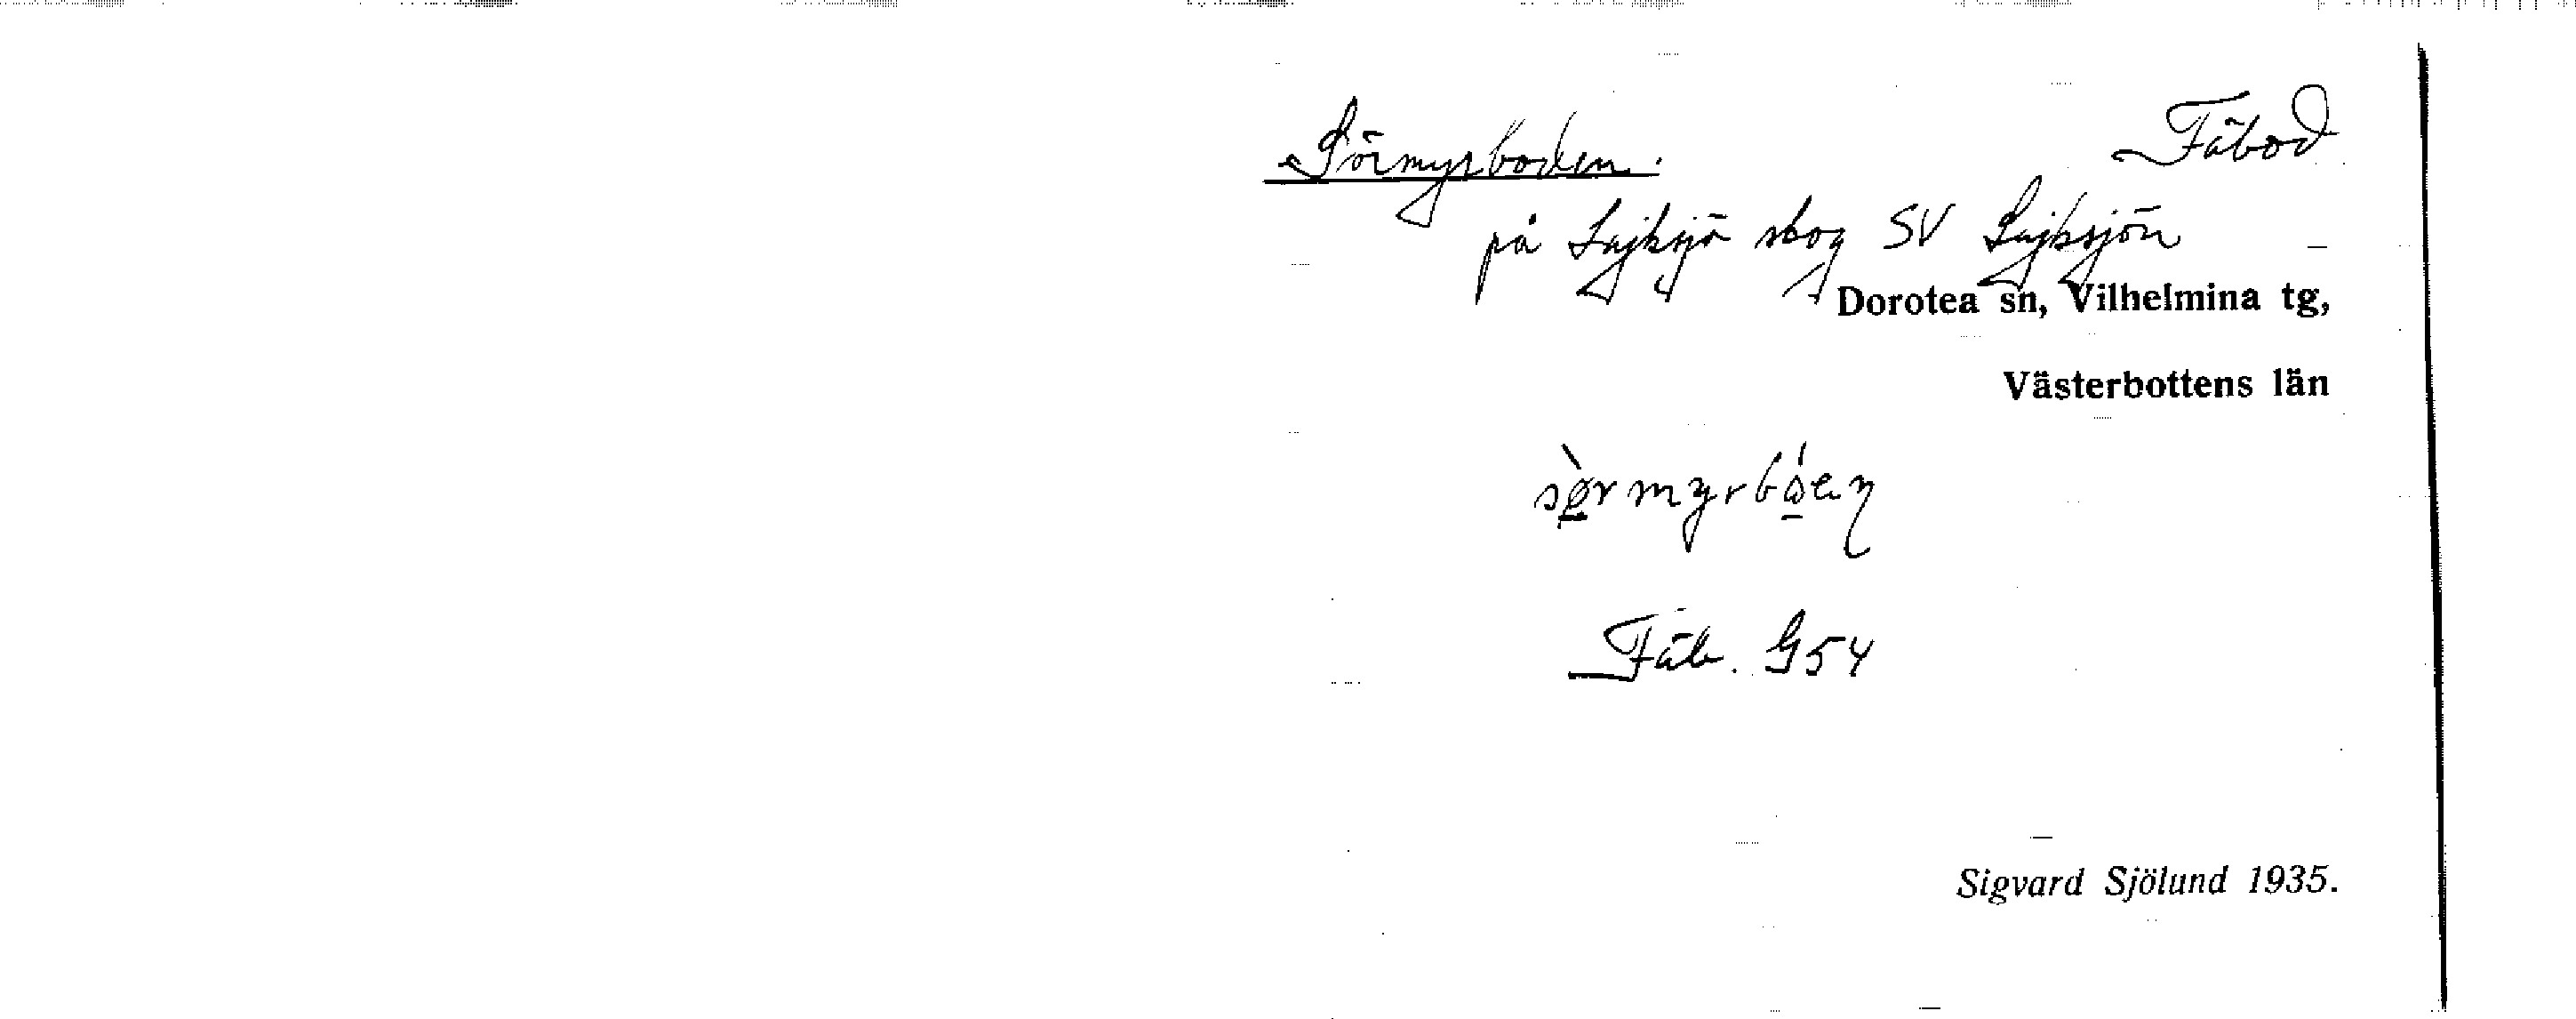 Sörmyrboden. Fäbod
på Lajksjö skog SV Lajksjön
Dorotea sn, Vilhelmina tg,
Västerbottens län
sø̀rmyrbó̱en
Fäb. G54
Sigvard Sjölund 1935.